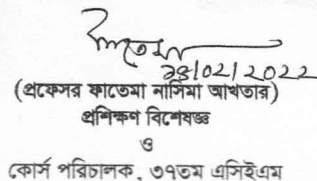 ২৪/০২/২০২২
(প্রফেসর ফাতেমা নাসিমা আখতার)
প্রশিক্ষণ বিশেষজ্ঞ
ও
কোর্স পরিচালক, ৩৭তম এসিইএম